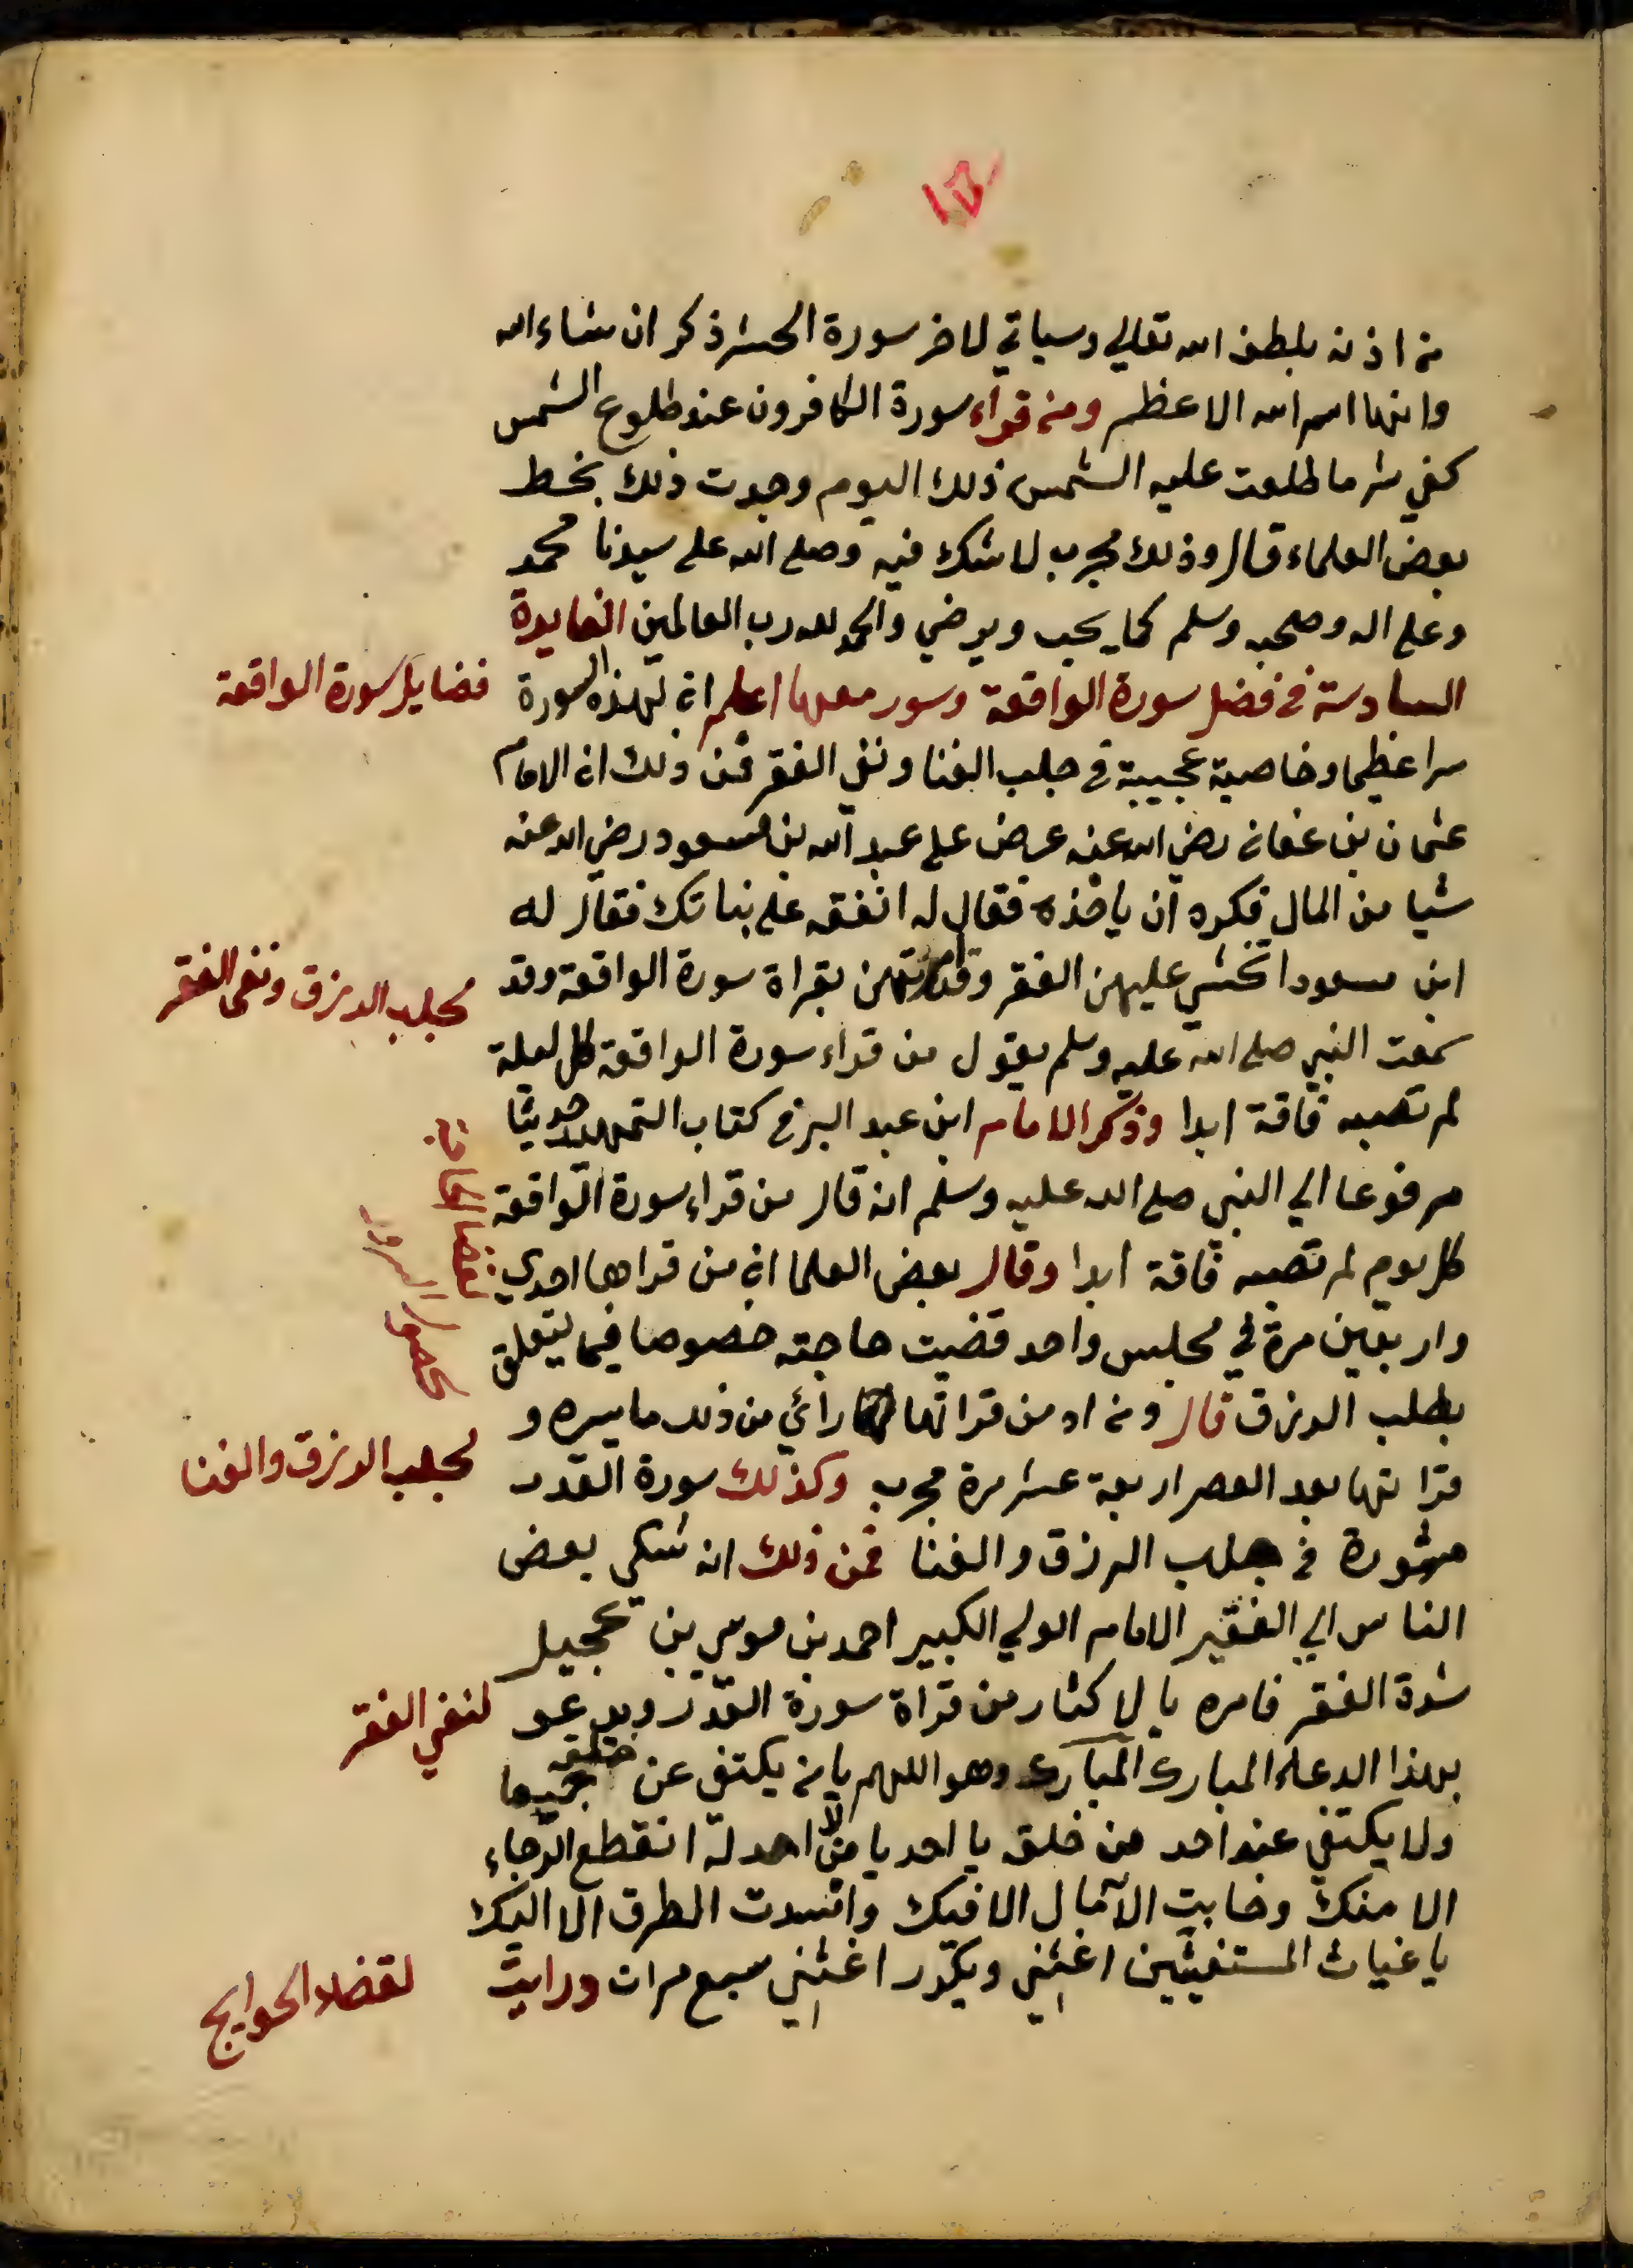 من اذنه بلطف الله تعالي وسياتي لاخر سورة الحشر ذكر ان شاء الله
وانها اسم الله الاعظم ومن قراء سورة الكافرون عند طلوع الشمس
كفي شر ما طلعت عليه الشمس ذلك اليوم وجدت ذلك بخط
بعض العلماء قال وذلك مجرب لا شك فيه وصلى الله على سيدنا محمد
وعلى اله وصحبه وسلم كما يحب ويرضي والحمد لله رب العالمين الفايدة
السادسة في فضل سورة الواقعة وسور معها اعلم ان لهذه السورة
فضايل سورة الواقعة
سرا عظيما وخاصية عجيبة في جلب الغنا ونفي الفقر فمن ذلك ان الامام
عثمان بن عفان رضي الله عنه عرض على عبد الله بن مسعود رضي الله عنه
شيا من المال فكره ان ياخذه فقال له انفقه على بناتك فقال له
ابن مسعود اتخشي عليهن الفقر وقد امرتهن بقراة سورة الواقعة وقد
لجلب الرزق ونفى الفقر
سمعت النبي صلى الله عليه وسلم يقول من قراء سورة الواقعة كل ليلة
لم تصبه فاقة ابدا وذكر الامام ابن عبد البر في كتاب التمهيد حديثا
مرفوعا الي النبي صلى الله عليه وسلم انه قال من قراء سورة الواقعة
كل يوم لم تصبه فاقة ابدا وقال بعض العلما ان من قراها احدي
لقضا الحاجة
وار بعين مرة في مجلس واحد قضيت حاجته خصوصا فيما يتعلق
بطلب الرزق قال ومن اد من قراتها راي من ذلك ما يسره و
قراتها بعد العصر اربعة عشر مرة مجرب وكذلك سورة القدر
لجلب الرزق والغنا
مشهورة في جلب الرزق والغنا فمن ذلك انه شكي بعض
الناس الي الفقير الامام الولي الكبير احمد بن موسي بن عجيل
شدة الفقر فامره بالاكثار من قراة سورة القدر ويدعو
لنفي الفقر
بهذا الدعاء المبارك المبارك وهو اللهم يا من يكتفي عن خلقه جميعا
ولا يكتفي عنه احد من خلقه يا احد يا من لا احد له انقطع الرجاء
الا منك وخابت الآمال الا فيك وانسدت الطرق الا اليك
يا غياث المستغيثين اغثني ويكرر اغثني سبع مرات ورايت
لقضاء الحوايج